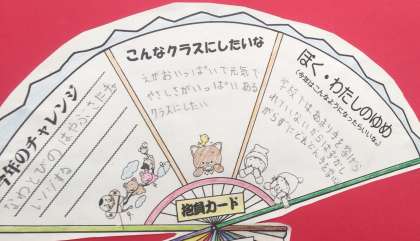 今年のチャレンジ
なわとびの はやぶさにチ
こんなクラスにしたいな
えがおいっぱいで元気で
やさしさがいっぱいある
クラスにしたい
ぼく・わたしのゆめ
(今年はこんなようになったらいいな。)
学校では あまり手を挙げら
れていないから はずかし
がらずに
抱負カード